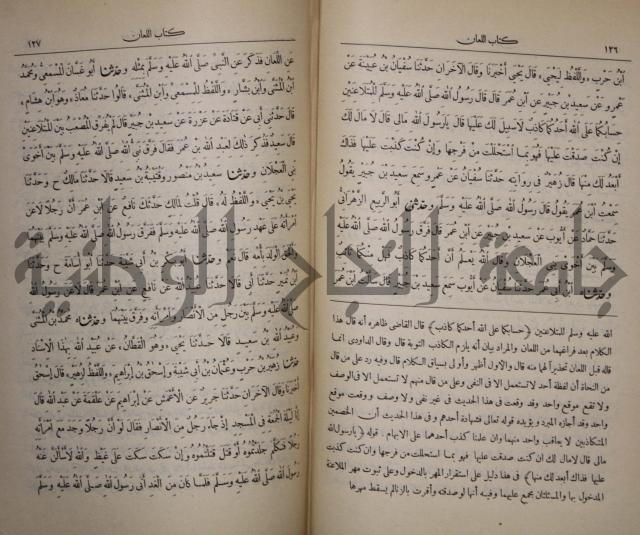 ١٢٦
كتاب اللعان
ابْنُ حَرْبٍ وَاللَّفْظُ لِيَحْيَى قَالَ يَحْيَى أَخْبَرَنَا وَقَالَ الْآخَرَانِ حَدَّثَنَا سُفْيَانُ بْنُ عُيَيْنَةَ عَنْ
عَمْرٍو عَنْ سَعِيدِ بْنِ جُبَيْرٍ عَنِ ابْنِ عُمَرَ قَالَ قَالَ رَسُولُ اللَّهِ صَلَّى اللَّهُ عَلَيْهِ وَسَلَّمَ لِلْمُتَلَاعِنَيْنِ
حِسَابُكُمَا عَلَى اللَّهِ أَحَدُكُمَا كَاذِبٌ لَا سَبِيلَ لَكَ عَلَيْهَا قَالَ يَا رَسُولَ اللَّهِ مَالِي قَالَ لَا مَالَ لَكَ
إِنْ كُنْتَ صَدَقْتَ عَلَيْهَا فَهُوَ بِمَا اسْتَحْلَلْتَ مِنْ فَرْجِهَا وَإِنْ كُنْتَ كَذَبْتَ عَلَيْهَا فَذَاكَ
أَبْعَدُ لَكَ مِنْهَا قَالَ زُهَيْرٌ فِي رِوَايَتِهِ حَدَّثَنَا سُفْيَانُ عَنْ عَمْرٍو سَمِعَ سَعِيدَ بْنَ جُبَيْرٍ يَقُولُ
سَمِعْتُ ابْنَ عُمَرَ يَقُولُ قَالَ رَسُولُ اللَّهِ صَلَّى اللَّهُ عَلَيْهِ وَسَلَّمَ وحَدَّثَنِي أَبُو الرَّبِيعِ الزَّهْرَانِيُّ
حَدَّثَنَا حَمَّادٌ عَنْ أَيُّوبَ عَنْ سَعِيدِ بْنِ جُبَيْرٍ عَنِ ابْنِ عُمَرَ قَالَ فَرَّقَ رَسُولُ اللَّهِ صَلَّى اللَّهُ عَلَيْهِ
وَسَلَّمَ بَيْنَ أَخَوَيْ بَنِي الْعَجْلَانِ وَقَالَ اللَّهُ يَعْلَمُ أَنَّ أَحَدَكُمَا كَاذِبٌ فَهَلْ مِنْكُمَا تَائِبٌ
وحَدَّثَنَاه ابْنُ أَبِي عُمَرَ حَدَّثَنَا سُفْيَانُ عَنْ أَيُّوبَ سَمِعَ سَعِيدَ بْنَ جُبَيْرٍ قَالَ سَأَلْتُ ابْنَ عُمَرَ
الله عليه وسلم للمتلاعنين (حسابكما على الله أحدكما كاذب) قال القاضي ظاهره أنه قال هذا
الكلام بعد فراغهما من اللعان والمراد بيان أنه يلزم الكاذب التوبة قال وقال الداودى انما
قاله قبل اللعان تحذيراً لهما منه قال والاول أظهر وأولى بسياق الكلام قال وفيه رد على من قال
من النحاة أن لفظة أحد لا تستعمل الا فى النفى وعلى من قال منهم لا تستعمل الا فى الوصف
ولا تقع موقع واحد وقد وقعت فى هذا الحديث فى غير نفى ولا وصف ووقعت موقع
واحد وقد أجازه المبرد ويؤيده قوله تعالى فشهادة أحدهم وفى هذا الحديث أن الخصمين
المتكاذبين لا يعاقب واحد منهما وان علمنا كذب أحدهما على الابهام . قوله (يارسول الله
مالى قال لامال لك ان كنت صدقت عليها فهو بما استحللت من فرجها وان كنت كذبت
عليها فذاك أبعد لك منها) فى هذا دليل على استقرار المهر بالدخول وعلى ثبوت مهر الملاعنة
المدخول بها والمسئلتان مجمع عليهما وفيه أنها لو صدقته وأقرت بالزنا لم يسقط مهرها
كتاب اللعان
١٢٧
عَنِ اللِّعَانِ فَذَكَرَ عَنِ النَّبِيِّ صَلَّى اللَّهُ عَلَيْهِ وَسَلَّمَ بِمِثْلِهِ وحَدَّثَنَا أَبُو غَسَّانَ الْمِسْمَعِيُّ وَمُحَمَّدُ
ابْنُ الْمُثَنَّى وَابْنُ بَشَّارٍ وَاللَّفْظُ لِلْمِسْمَعِيِّ وَابْنِ الْمُثَنَّى قَالُوا حَدَّثَنَا مُعَاذٌ وَهُوَ ابْنُ هِشَامٍ
قَالَ حَدَّثَنِي أَبِي عَنْ قَتَادَةَ عَنْ عَزْرَةَ عَنْ سَعِيدِ بْنِ جُبَيْرٍ قَالَ لَمْ يُفَرِّقِ الْمُصْعَبُ بَيْنَ الْمُتَلَاعِنَيْنِ
قَالَ سَعِيدٌ فَذُكِرَ ذَلِكَ لِعَبْدِ اللَّهِ بْنِ عُمَرَ فَقَالَ فَرَّقَ نَبِيُّ اللَّهِ صَلَّى اللَّهُ عَلَيْهِ وَسَلَّمَ بَيْنَ أَخَوَيْ
بَنِي الْعَجْلَانِ وحَدَّثَنَا سَعِيدُ بْنُ مَنْصُورٍ وَقُتَيْبَةُ بْنُ سَعِيدٍ قَالَا حَدَّثَنَا مَالِكٌ ح وَحَدَّثَنَا
يَحْيَى بْنُ يَحْيَى وَاللَّفْظُ لَهُ قَالَ قُلْتُ لِمَالِكٍ حَدَّثَكَ نَافِعٌ عَنِ ابْنِ عُمَرَ أَنَّ رَجُلًا لَاعَنَ
امْرَأَتَهُ عَلَى عَهْدِ رَسُولِ اللَّهِ صَلَّى اللَّهُ عَلَيْهِ وَسَلَّمَ فَفَرَّقَ رَسُولُ اللَّهِ صَلَّى اللَّهُ عَلَيْهِ وَسَلَّمَ بَيْنَهُمَا
وَأَلْحَقَ الْوَلَدَ بِأُمِّهِ قَالَ نَعَمْ وحَدَّثَنَا أَبُو بَكْرِ بْنُ أَبِي شَيْبَةَ حَدَّثَنَا أَبُو أُسَامَةَ ح وَحَدَّثَنَا
ابْنُ نُمَيْرٍ حَدَّثَنَا أَبِي قَالَا حَدَّثَنَا عُبَيْدُ اللَّهِ عَنْ نَافِعٍ عَنِ ابْنِ عُمَرَ قَالَ لَاعَنَ رَسُولُ اللَّهِ
صَلَّى اللَّهُ عَلَيْهِ وَسَلَّمَ بَيْنَ رَجُلٍ مِنَ الْأَنْصَارِ وَامْرَأَتِهِ وَفَرَّقَ بَيْنَهُمَا وحَدَّثَنَاه مُحَمَّدُ بْنُ الْمُثَنَّى
وَعُبَيْدُ اللَّهِ بْنُ سَعِيدٍ قَالَا حَدَّثَنَا يَحْيَى وَهُوَ الْقَطَّانُ عَنْ عُبَيْدِ اللَّهِ بِهَذَا الْإِسْنَادِ
حَدَّثَنَا زُهَيْرُ بْنُ حَرْبٍ وَعُثْمَانُ بْنُ أَبِي شَيْبَةَ وَإِسْحَقُ بْنُ إِبْرَاهِيمَ وَاللَّفْظُ لِزُهَيْرٍ قَالَ إِسْحَقُ
أَخْبَرَنَا وَقَالَ الْآخَرَانِ حَدَّثَنَا جَرِيرٌ عَنِ الْأَعْمَشِ عَنْ إِبْرَاهِيمَ عَنْ عَلْقَمَةَ عَنْ عَبْدِ اللَّهِ قَالَ
إِنَّا لَيْلَةَ الْجُمُعَةِ فِي الْمَسْجِدِ إِذْ جَاءَ رَجُلٌ مِنَ الْأَنْصَارِ فَقَالَ لَوْ أَنَّ رَجُلًا وَجَدَ مَعَ امْرَأَتِهِ
رَجُلًا فَتَكَلَّمَ جَلَدْتُمُوهُ أَوْ قَتَلَ قَتَلْتُمُوهُ وَإِنْ سَكَتَ سَكَتَ عَلَى غَيْظٍ وَاللَّهِ لَأَسْأَلَنَّ عَنْهُ
رَسُولَ اللَّهِ صَلَّى اللَّهُ عَلَيْهِ وَسَلَّمَ فَلَمَّا كَانَ مِنَ الْغَدِ أَتَى رَسُولَ اللَّهِ صَلَّى اللَّهُ عَلَيْهِ وَسَلَّمَ
جامعة النجاح الوطنية